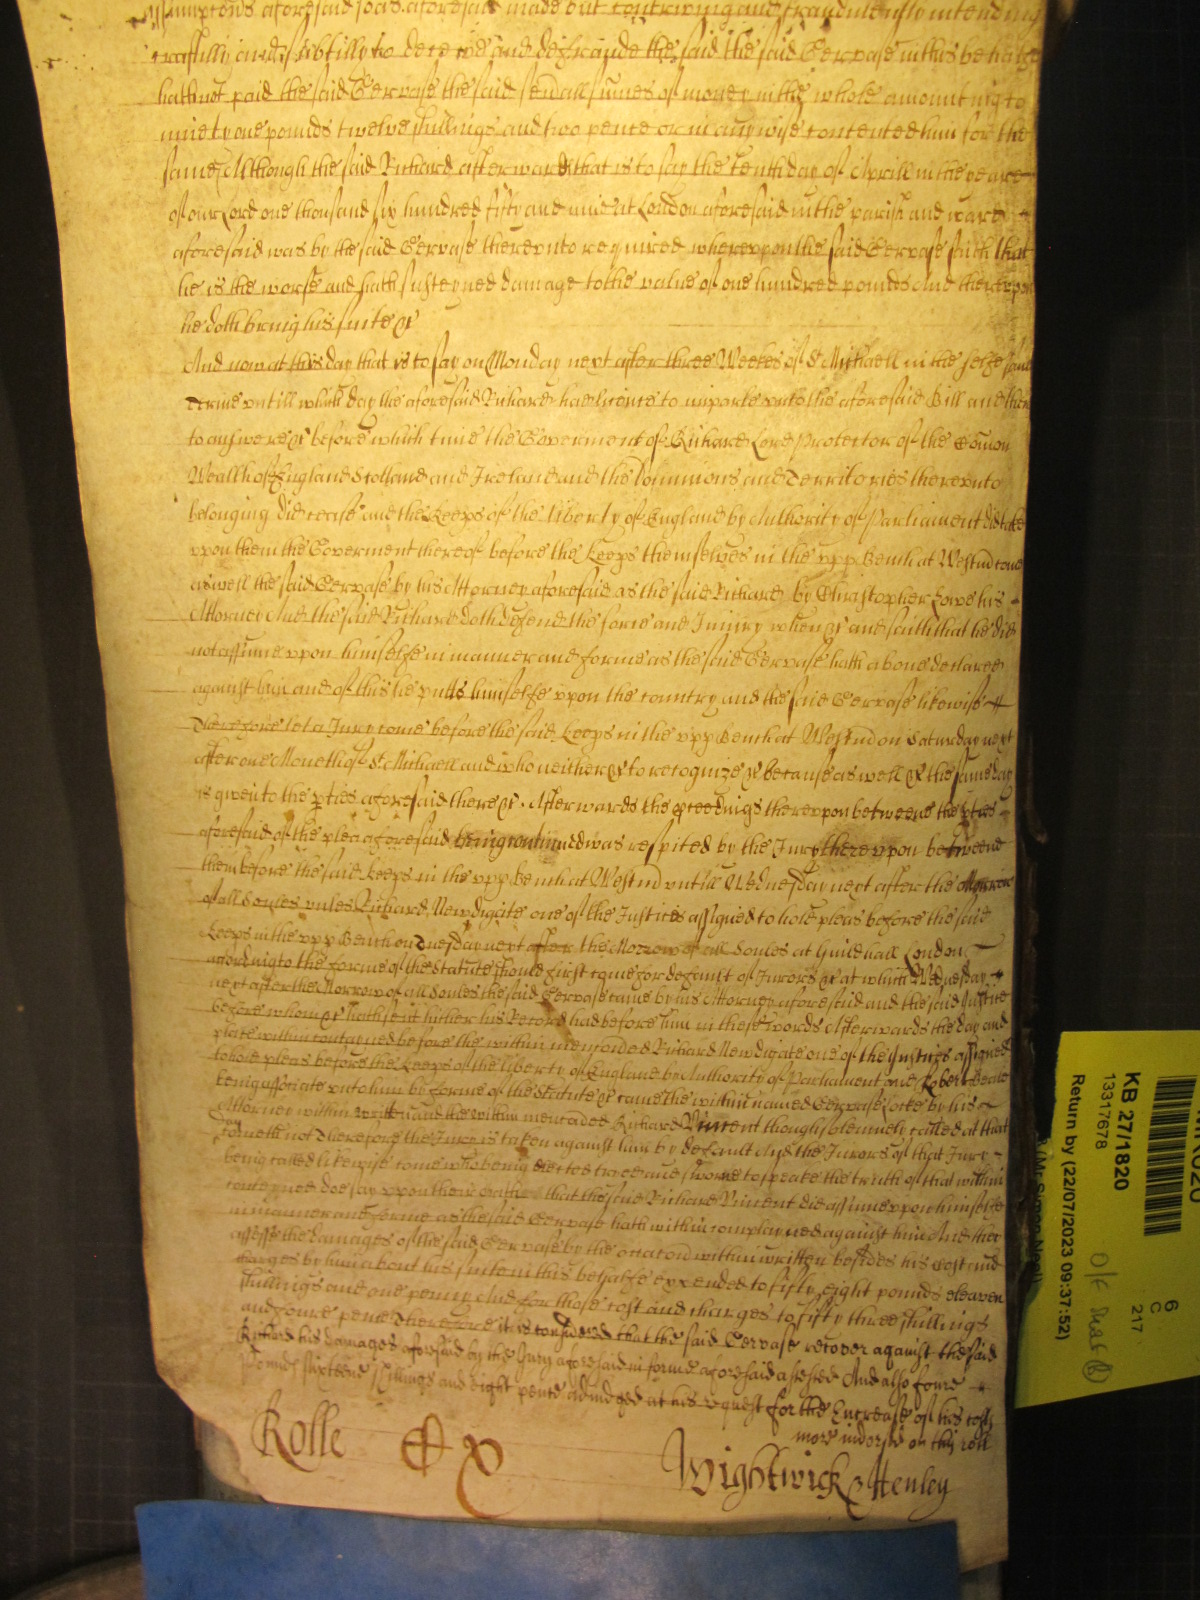 Assumptions aforesaid soe as aforesaid made but contriveing and fraudulently intending
craftilly and subtilly to deceive and defraude the said the said Gervase in this behalfe
hath not paid the said Gervase the said severall sumes of money in the whole amounting to
ninety one pounds twelve shillings and two pence or in any wise contented him for the
same Although the said Richard afterwards that is to say the tenth day of Aprill in the yeare
of our Lord one thousand six hundred fifty and nine at London aforesaid in the parish and ward
aforesaid was by the said Gervase thereunto required whereupon the said Gervase saith that
he is the worse and hath susteyned damage to the value of one hundred pounds And thereupon
he doth bring his suite &c
And now at this day that is to say on Monday next after three Weekes of St Michaell in the selfe same
terme untill which day the aforesaid Richard had licence to imparle unto the aforesaid Bill and then
to answere &c before which time the Goverment of Richard Lord Protector of the Comon
Wealth of England Scotland and Ireland and the Dominions and Territories thereunto
belonging did cease and the Keeps of the liberty of England by Authority of Parliament did take
upon them the Goverment thereof before the Keeps themselves in the upp Bench at Westm come
aswell the said Gervase by his Attorney aforesaid as the said Richard by Christopher Lowe his
Attorney And the said Richard doth defend the force and Injury when &c and saith that he did
not assume upon himselfe in manner and forme as the said Gervase hath above declared
against him and of this he putts himselfe upon the country and the said Gervase likewise
Therefore let a Jury come before the said Keeps in the upp Bench at Westm on Saturday next
after one Moneth of St Michaell and who neither &c to recognize &c because aswell &c the same day
is given to the pties aforesaid there &c Afterwards the pceedings thereupon betweene the pties
aforesaid of the plea aforesaid being continued was respited by the Jury thereupon betweene
them before the said Keeps in the upp Bench at Westm untill Wednesday next after the Morrow
of all Soules unles Richard Newdigate one of the Justices assigned to hold pleas before the said
Keeps in the upp Bench on Tuesday next after the Morrow of all Soules at Guildhall London
according to the forme of the Statute should first come for default of Jurors &c at which Wednesday
next after the Morrow of all Soules the said Gervase came by his Attorney aforesaid and the said Justice
before whom &c hath sent hither his Record had before him in these words Afterwards the day and
place within conteyned before the within menconed Richard Newdigate one of the Justices assigned
to hold pleas before the Keeps of the liberty of England by Authority of Parliament one Robert
being associate unto him by forme of the Statute &c came the within named Gervase Locke by his
Attorney within written and the within menconed Richard Vincent though solemnely called at that
day cometh not Therefore the Jury is taken against him by default And the Jurors of that Jury
being called likewise come who being elected tryed and sworne to speake the truth of that within
conteyned doe say upon their oathes that the said Richard Vincent did assume upon himselfe
in manner and forme as the said Gervase hath within complayned against him And they
assesse the damages of the said Gervase by the occacon within written besides his Cost and
charges by him about his suite in this behalfe expended to fifty eight pounds eleaven
shillings and one penny And for those cost and charges to fifty three shillings
and foure pence Therefore it is considered that the said Gervase recover against the said
Richard his damages aforesaid by the Jury aforesaid in forme aforesaid assessed And also foure
Pounds sixteene shillings and eight pence adiudged at his request for the Encrease of his costs
more indorsed on this roll
Rolle
Wightwick & Henley
KB 27/1820
13317678
Return by (22/07/2023 09:37:52)
6
C
217